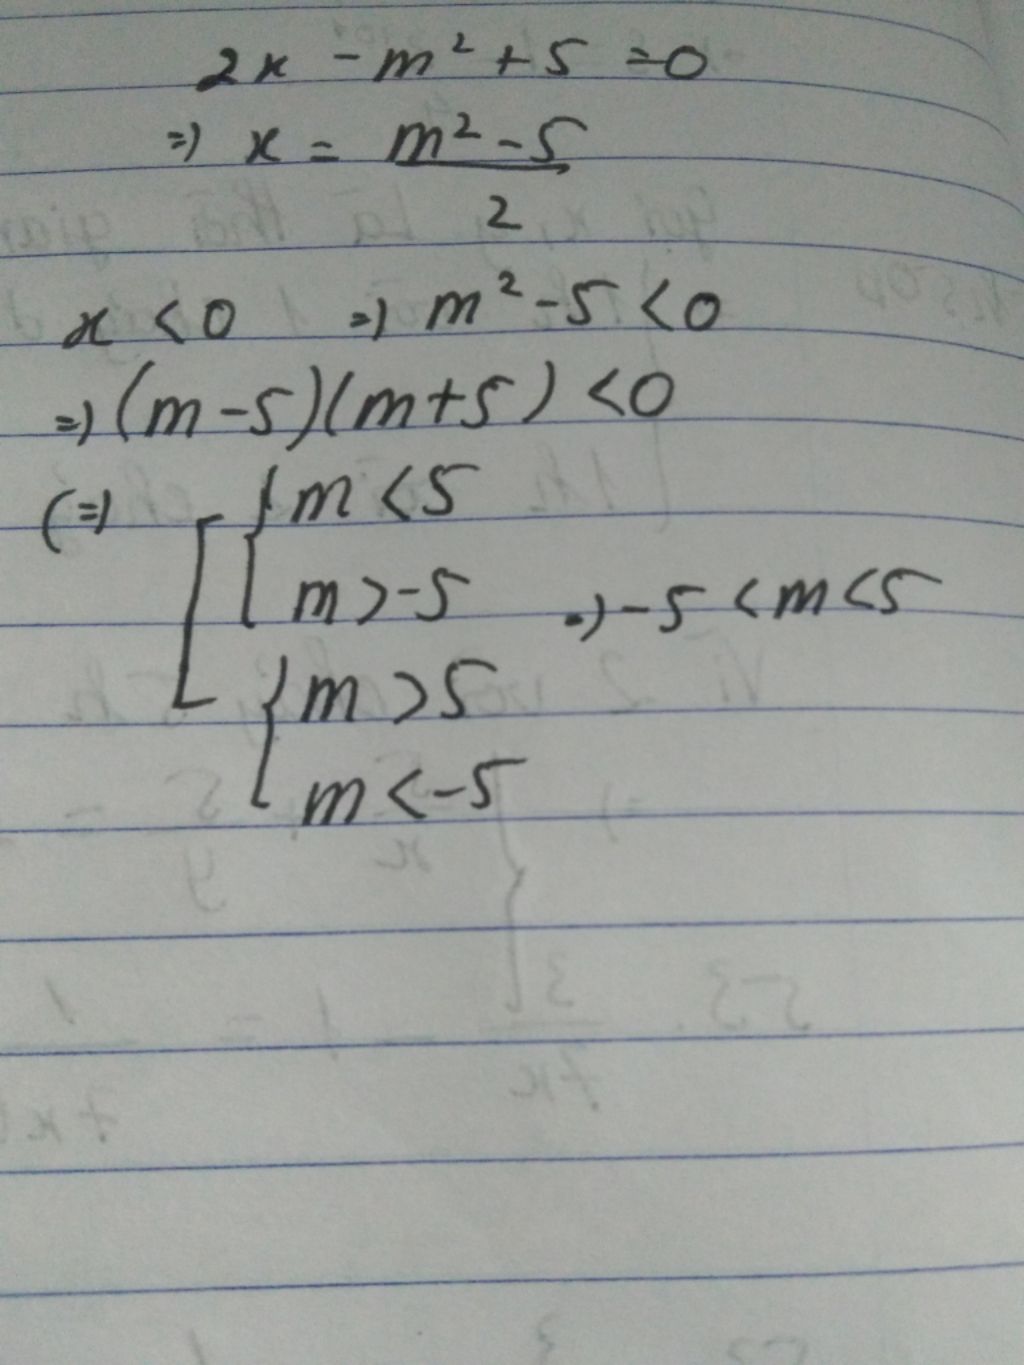 2x - m² + 5 = 0
=) x = (m² - 5)/2
x < 0 =) m² - 5 < 0
=) (m - 5)(m + 5) < 0
(=) [ { m < 5
m > -5 =) -5 < m < 5
{ m > 5
m < -5